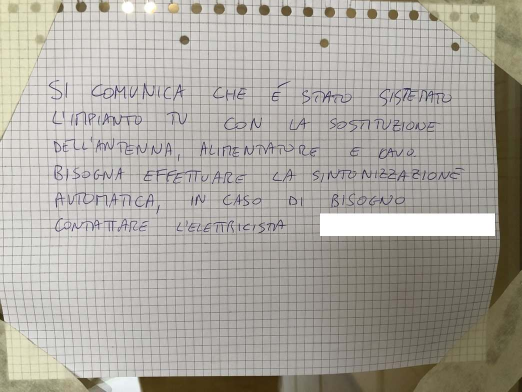 SI COMUNICA CHE È STATO SISTEMATO
L'IMPIANTO TV CON LA SOSTITUZIONE
DELL'ANTENNA, ALIMENTATORE E CAVO.
BISOGNA EFFETTUARE LA SINTONIZZAZIONE
AUTOMATICA, IN CASO DI BISOGNO
CONTATTARE L'ELETTRICISTA